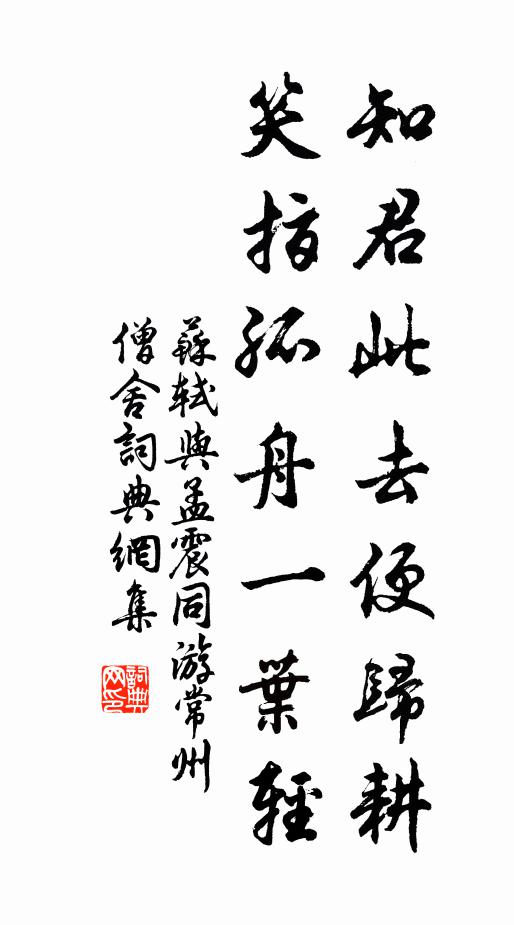 知君此去便歸耕
笑指孤舟一葉輕
蘇軾與孟震同游常州
僧舍詞典網集
詞典
网印